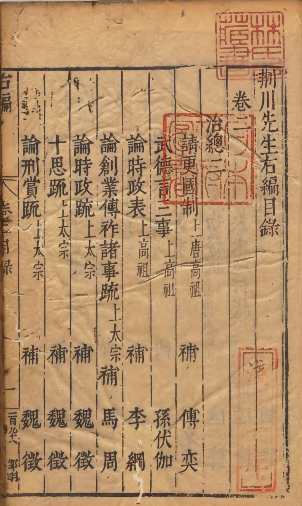 荊川先生右編目錄
卷二
治總三
請更國制上唐高祖 補 傅奕
武德初三事上高祖 孫伏伽
論時政表上高祖 補 李綱
論創業傳祚諸事疏上太宗 補 馬周
論時政疏上太宗 補 魏徵
十思疏上太宗 補 魏徵
論刑賞疏上太宗 補 魏徵
右編